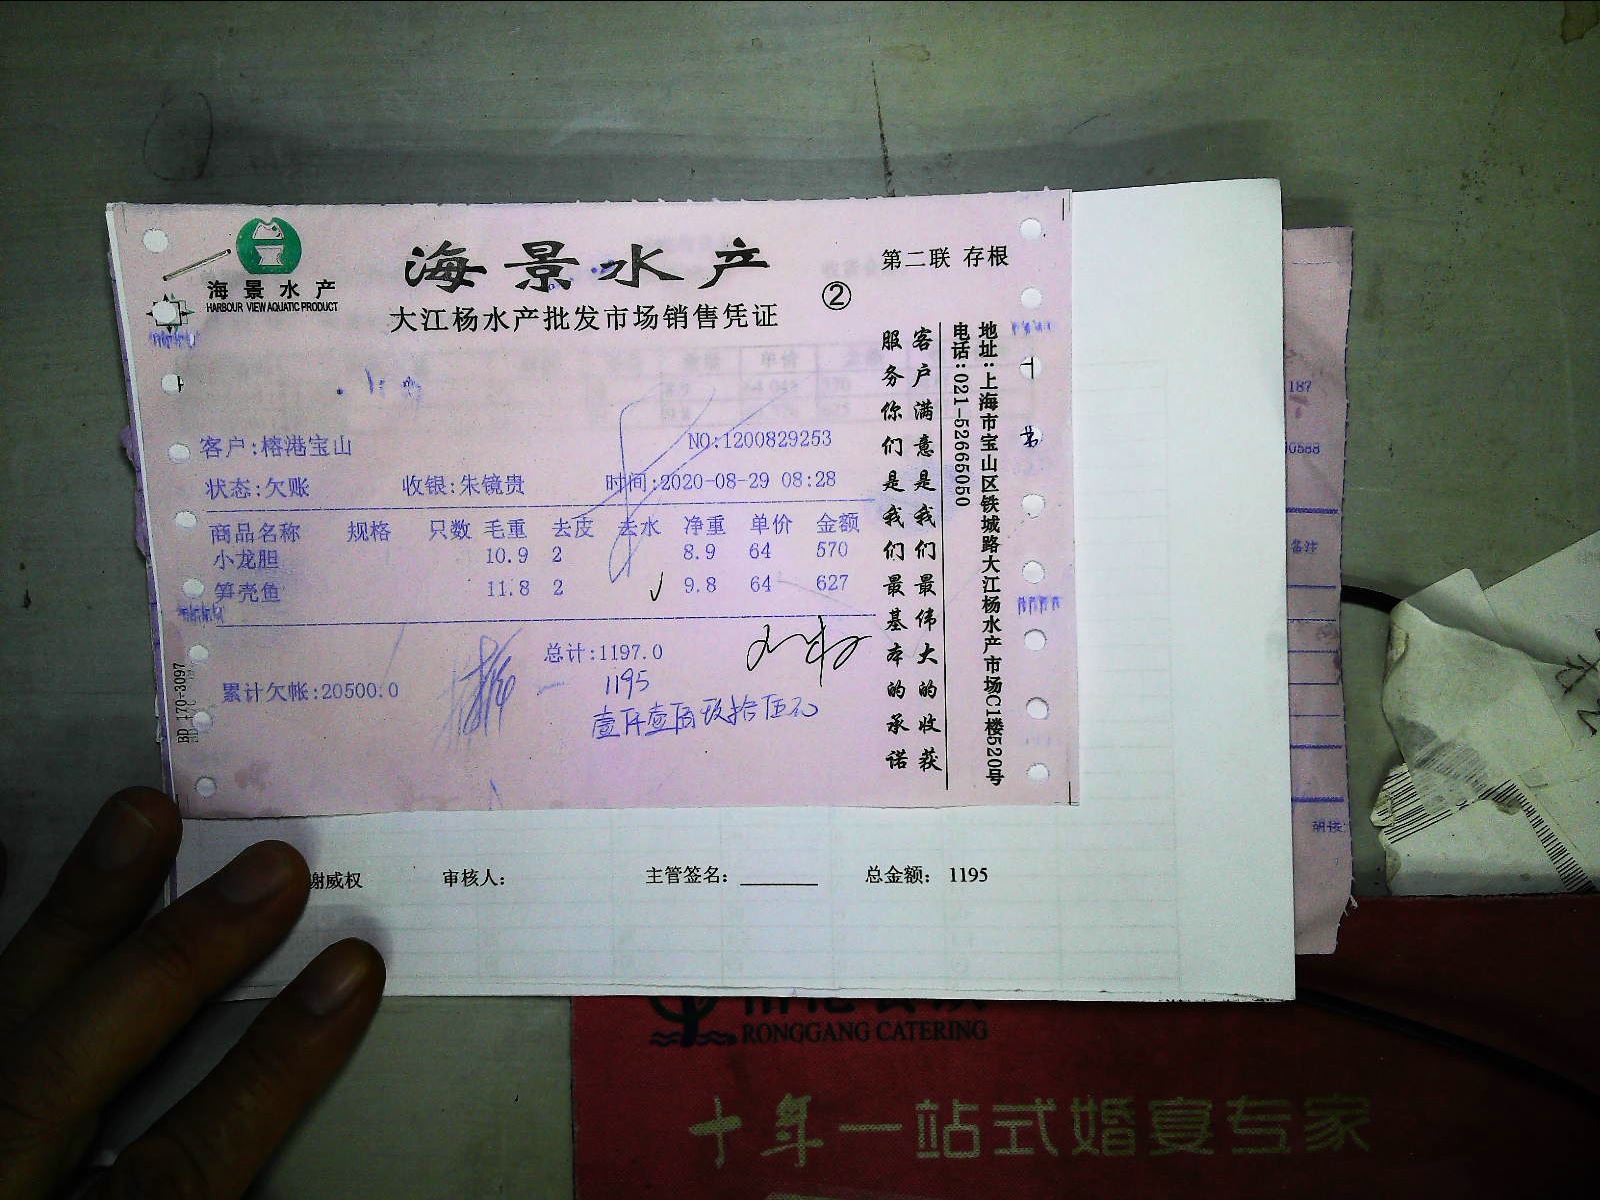 海景水产
HARBOUR VIEW AQUATIC PRODUCT
海景水产
大江杨水产批发市场销售凭证
②
第二联 存根
客户:榕港宝山
NO:1200829253
状态:欠账 收银:朱镜贵 时间:2020-08-29 08:28
商品名称 规格 只数 毛重 去皮 去水 净重 单价 金额
小龙胆 10.9 2 8.9 64 570
笋壳鱼 11.8 2 9.8 64 627
总计:1197.0
1195
累计欠帐:20500.0
壹仟壹佰玖拾伍元
BD 170-3097
客户满意是我们最伟大的收获
服务你们是我们最基本的承诺
地址:上海市宝山区铁城路大江杨水产市场C1楼520号
电话:021-52665050
187
备注
谢威权 审核人: 主管签名: 总金额: 1195
RONGGANG CATERING
十年一站式婚宴专家